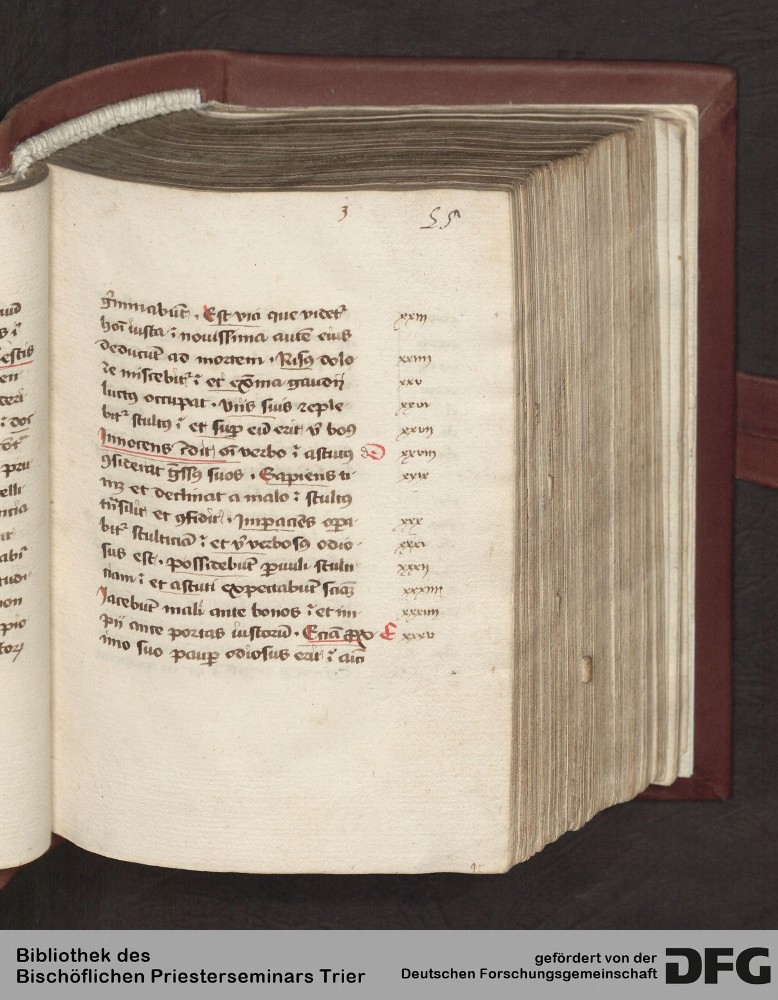 3
55
g̅minabūt · Est via que videtᷣ
hoī iusta ⁊ nouissima autē eius
deducūt ad mortem · Risꝯ dolo
re miscebitᷣ ⁊ et ext̅ma gaudij
luctꝯ occupat · Viis suis reple
bitᷣ stultꝯ ⁊ et sup̱ eū erit vͥ bonꝯ
Innocens c̅dit oī verbo ⁊ astutꝯ
ꝯsiderat g̅ssꝯ suos · Sapiens ti
mꝫ et declinat a malo ⁊ stultꝯ
tͣnsilit et ꝯfidit · Impaciēs opa
bitᷣ stulticiā ⁊ et vͥ versutꝯ odio
sus est · possidebūt paruuli stulti
ciam ⁊ et astuti expectabūt sciāꝫ
Iacebūt mali ante bonos ⁊ et im
pij ante portas iustorū · Eciā p̱xi
imo suo paup̱ odiosus erit ⁊ ami
xxiii
xxiiii
xxv
xxvi
xxvii
xxviii
xxix
xxx
xxxi
xxxii
xxxiii
xxxiiii
xxxv
D
E
Bibliothek des
Bischöflichen Priesterseminars Trier
gefördert von der
Deutschen Forschungsgemeinschaft
DFG